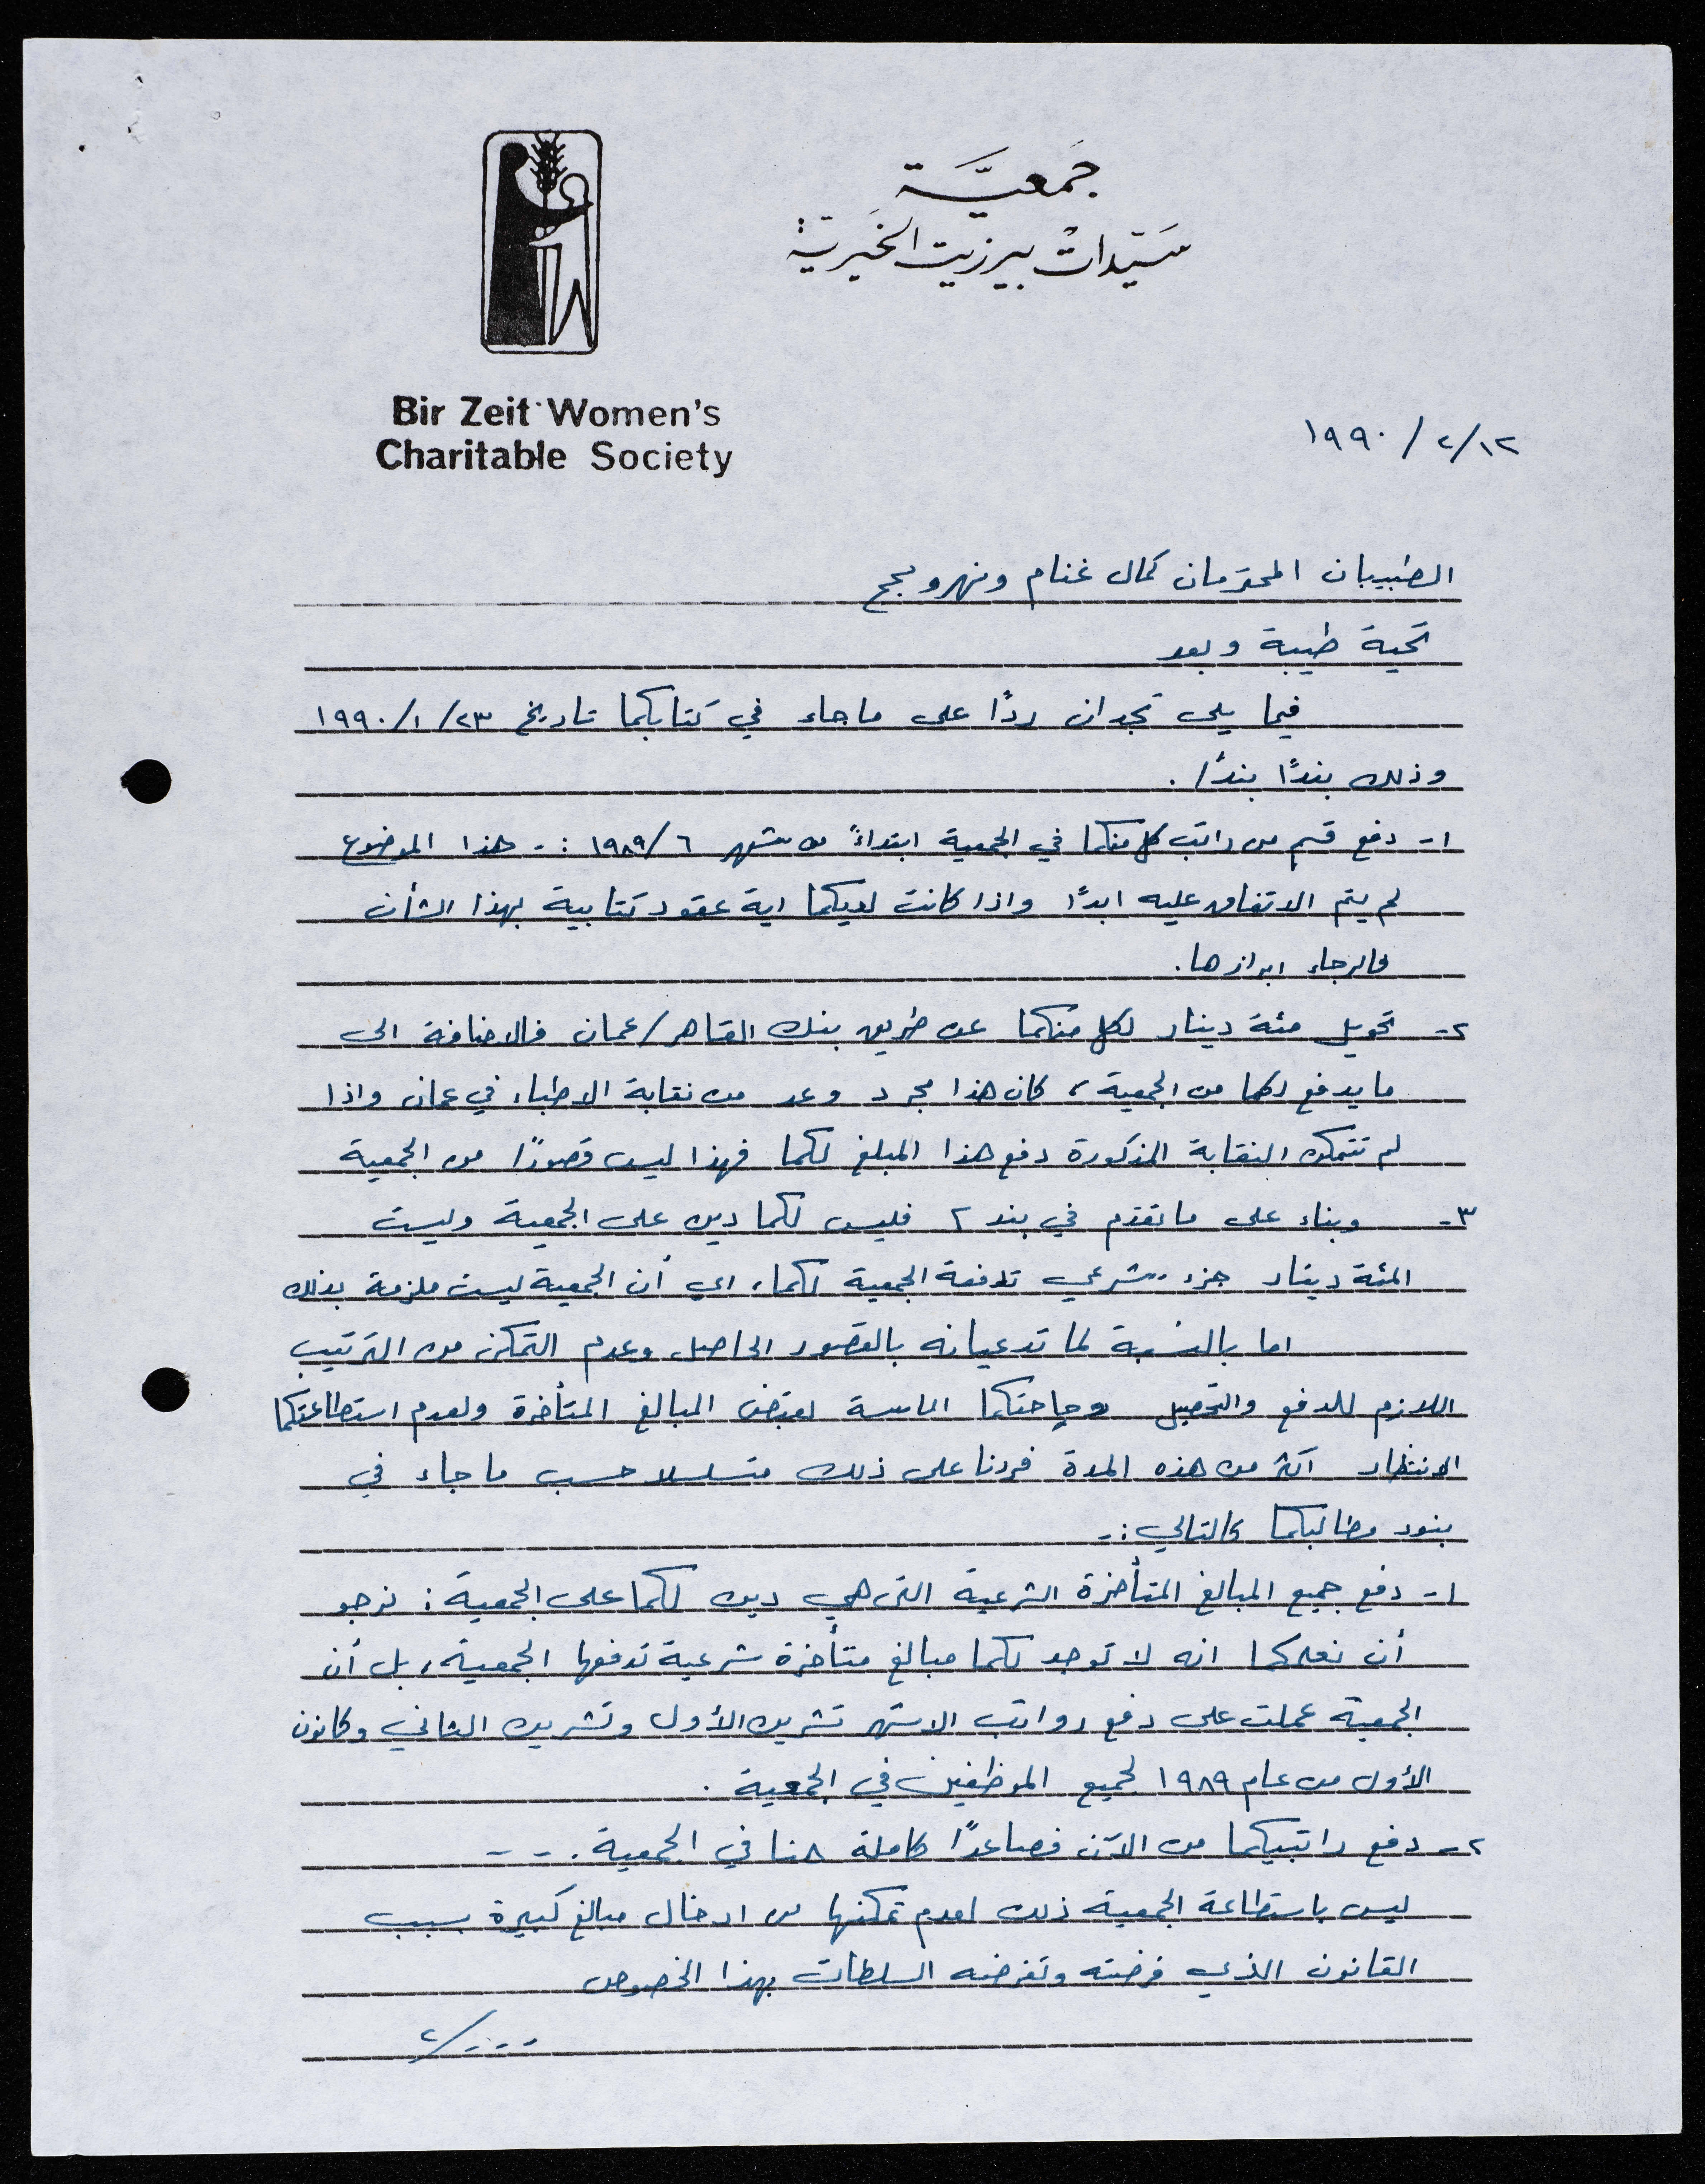 جمعيّة
سيّدات بيرزيت الخيرية
Bir Zeit Women's
Charitable Society
١٢/٢/١٩٩٠
الطبيبان المحترمان كمال غنام ونهرو بجج
تحية طيبة وبعد
فيما يلي تجدان ردًا على ما جاء في كتابكما تاريخ ٢٣/١/١٩٩٠
وذلك بندًا بندًا.
١- دفع قسم من راتب كل منكما في الجمعية ابتداءً من شهر ٦/١٩٨٩ :- هذا الموضوع
لم يتم الاتفاق عليه ابدًا واذا كانت لديكما اية عقود كتابية بهذا الشأن
فالرجاء ابرازها.
٢- تحويل مئة دينار لكل منكما عن طريق بنك القاهر/عمان فالاضافة الى
ما يدفع لكما من الجمعية، كان هذا مجرد وعد من نقابة الاطباء في عمان واذا
لم تتمكن النقابة المذكورة دفع هذا المبلغ لكما فهذا ليس قصورًا من الجمعية
٣- وبناء على ما تقدم في بند ٢ فليس لكما دين على الجمعية وليست
المئة دينار جزء شرعي تدفعه الجمعية لكما، اي أن الجمعية ليست ملزمة بذلك
اما بالنسبة لما تدعيانه بالقصور الحاصل وعدم التمكن من الترتيب
اللازم للدفع والتحصيل وحاجتكما الماسة لقبض المبالغ المتأخرة ولعدم استطاعتكما
الانتظار اكثر من هذه المدة فردنا على ذلك متسلسلا حسب ما جاء في
بنود مطالبكما كالتالي :-
١- دفع جميع المبالغ المتأخرة الشرعية التي هي دين لكما على الجمعية : نرجو
أن نعلمكما انه لا توجد لكما مبالغ متأخرة شرعية تدفعها الجمعية، بل أن
الجمعية عملت على دفع رواتب الاشهر تشرين الأول وتشرين الثاني وكانون
الأول من عام ١٩٨٩ لجميع الموظفين في الجمعية .
٢- دفع راتبيكما من الآن فصاعدًا كاملة هنا في الجمعية . - -
ليس باستطاعة الجمعية ذلك لعدم تمكنها من ادخال مبالغ كبيرة بسبب
القانون الذي فرضته وتفرضه السلطات بهذا الخصوص
..../٢